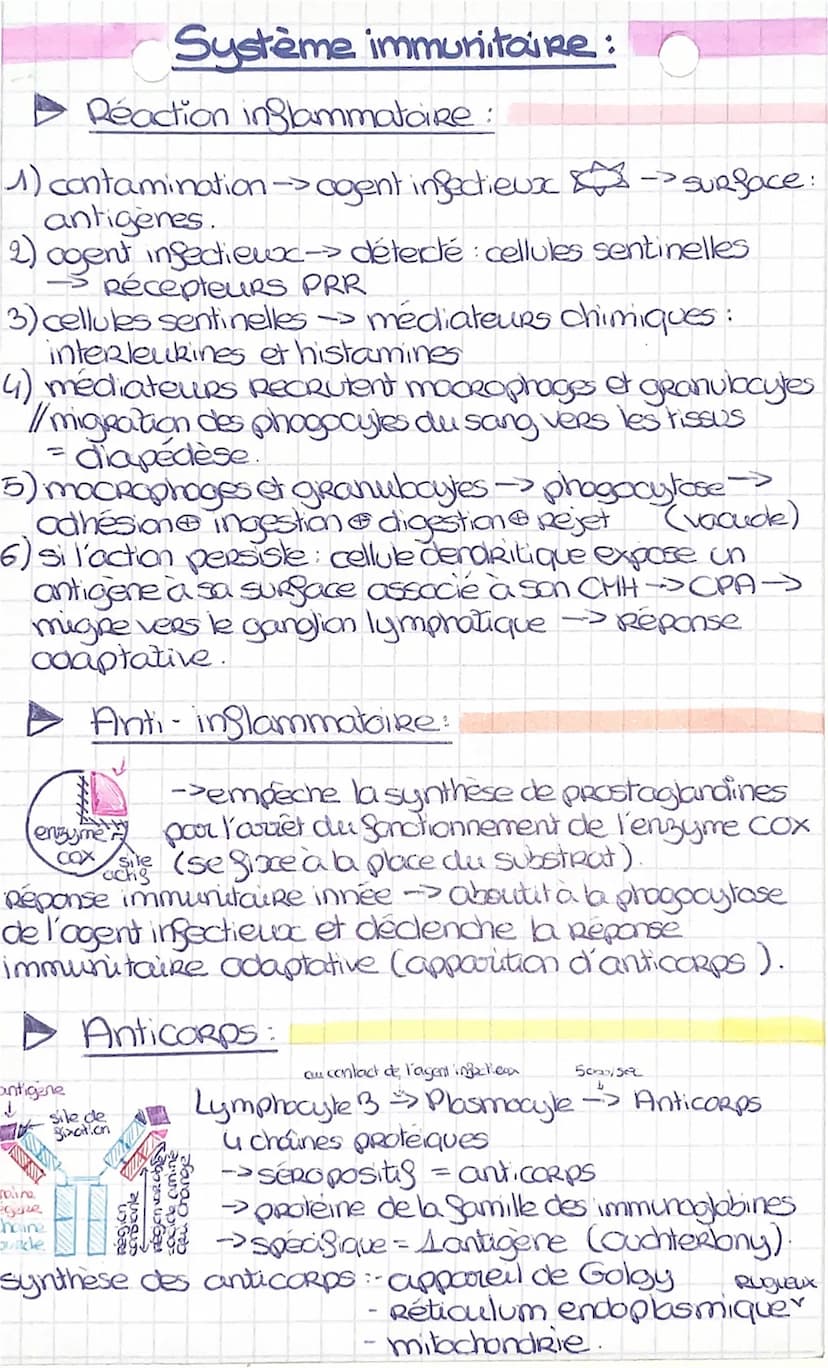 Système immunitaire :
Réaction inflammatoire :
1) contamination -> agent infectieux -> surface :
antigènes.
2) agent infectieux -> détecté : cellules sentinelles
-> Récepteurs PRR
3) cellules sentinelles -> médiateurs chimiques :
interleukines et histamines
4) médiateurs recrutent macrophages et granulocytes
// migration des phagocytes du sang vers les tissus
= diapédèse.
5) macrophages et granulocytes -> phagocytose ->
adhésion ⊕ ingestion ⊕ digestion ⊕ rejet (vacuole)
6) si l'action persiste : cellule dendritique expose un
antigène à sa surface associé à son CMH -> CPA ->
migre vers le ganglion lymphatique -> Réponse
adaptative.
Anti-inflammatoire :
enzyme
COX
site
actif
-> empêche la synthèse de prostaglandines
pour l'arrêt du fonctionnement de l'enzyme COX
(se fixe à la place du substrat).
Réponse immunitaire innée -> aboutit à la phagocytose
de l'agent infectieux et déclenche la réponse
immunitaire adaptative (apparition d'anticorps).
Anticorps :
antigène
site de
fixation
région
variable
acide aminé
qui change
au contact de l'agent infectieux
Lymphocyte B -> Plasmocyte -> Anticorps
4 chaînes protéiques
-> séropositif = anticorps
-> protéine de la famille des immunoglobines
-> spécifique = 1 antigène (ouchterlony).
synthèse des anticorps : - appareil de Golgy
- Réticulum endoplasmique Rugueux
- mitochondrie.